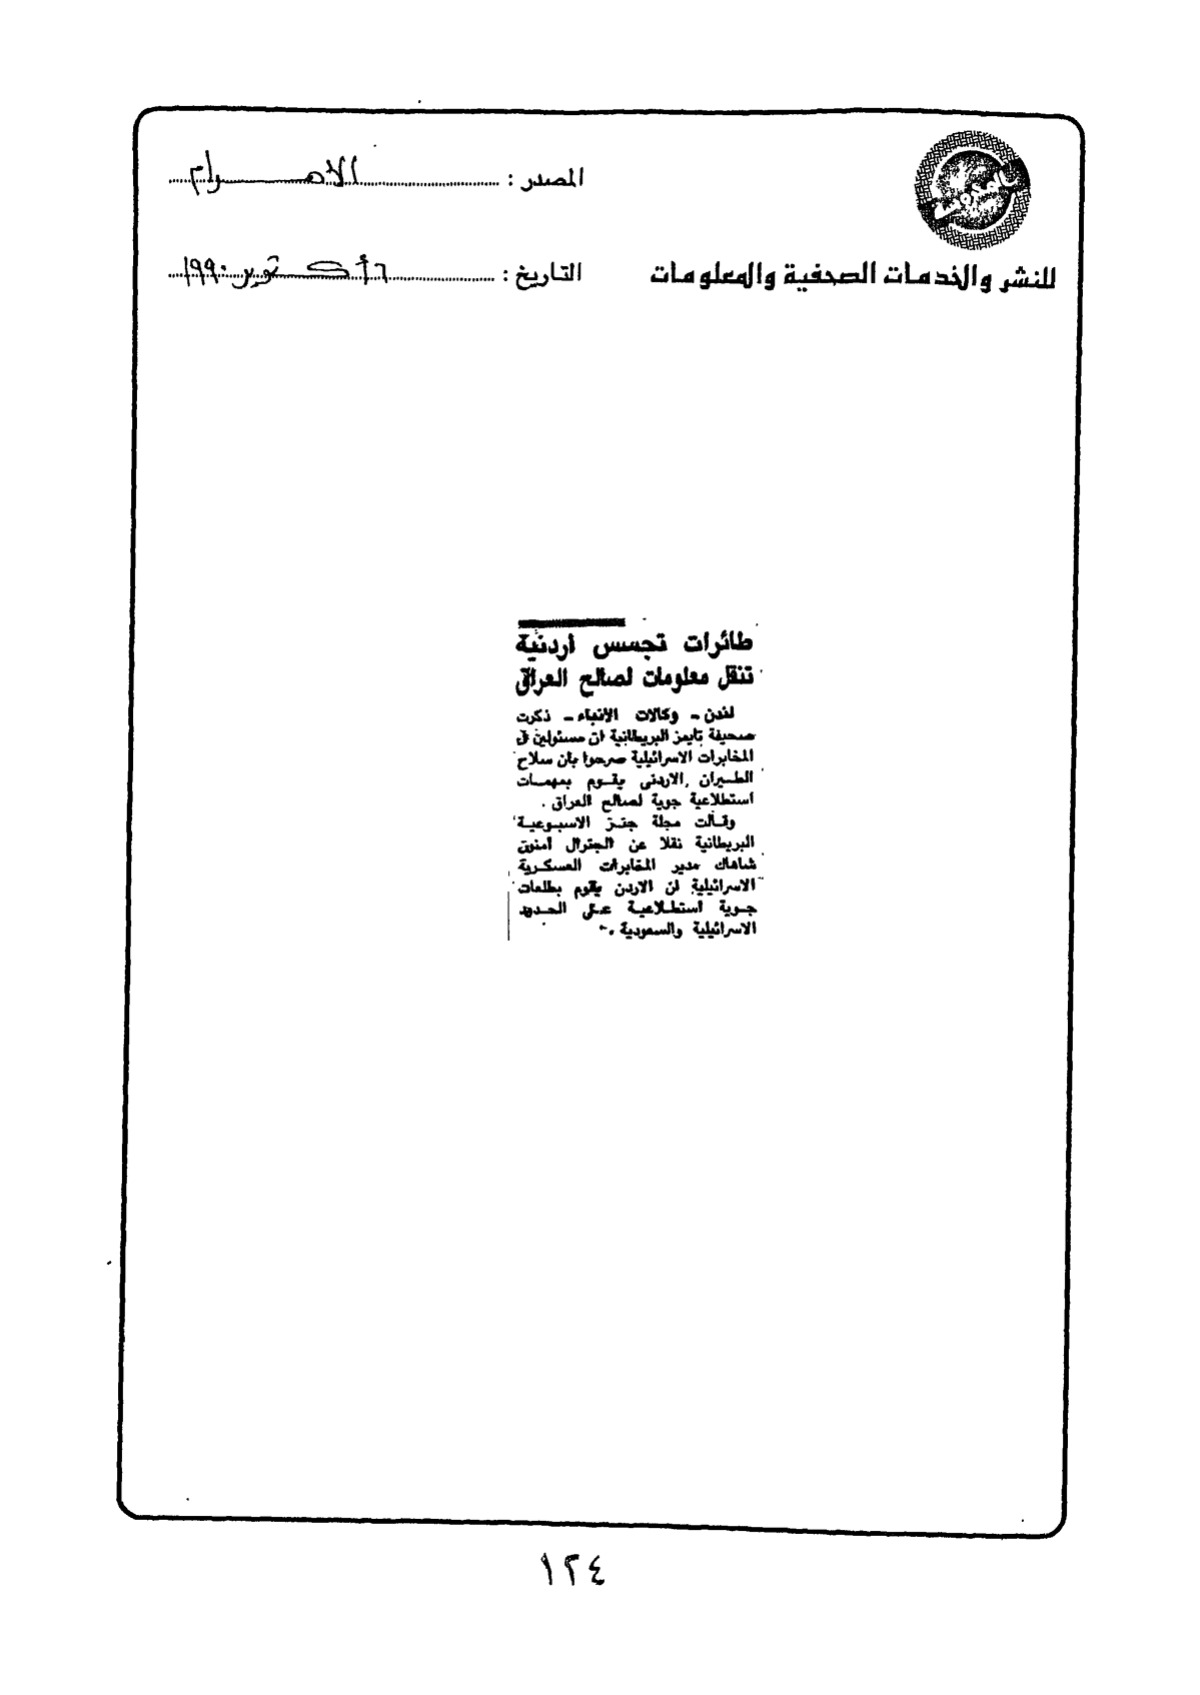 المصدر : الأهرام
للنشر والخدمات الصحفية والمعلومات
التاريخ : ٦ أكتوبر ١٩٩٠
طائرات تجسس اردنية
تنقل معلومات لصالح العراق
لندن - وكالات الأنباء - ذكرت
صحيفة تايمز البريطانية ان مسئولين فى
المخابرات الاسرائيلية صرحوا بان سلاح
الطيران الاردنى يقوم بمهمات
استطلاعية جوية لصالح العراق .
وقالت مجلة جنز الاسبوعية
البريطانية نقلا عن الجنرال امنون
شاهاك مدير المخابرات العسكرية
الاسرائيلية ان الاردن يقوم بطلعات
جوية استطلاعية على الحدود
الاسرائيلية والسعودية .
١٢٤